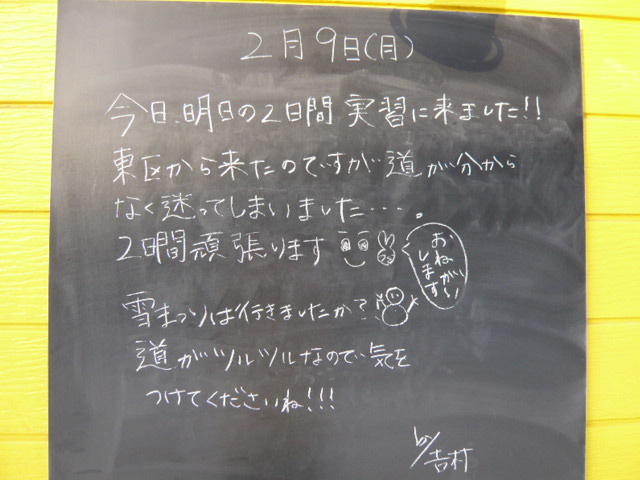 2月9日(月)
今日、明日の2日間 実習に来ました!!
東区から来たのですが 道が分から
なく迷ってしまいました…。
2日間頑張ります
おねがい
します
雪まつりは行きましたか?
道がツルツルなので気を
つけてくださいね!!!
by/吉村